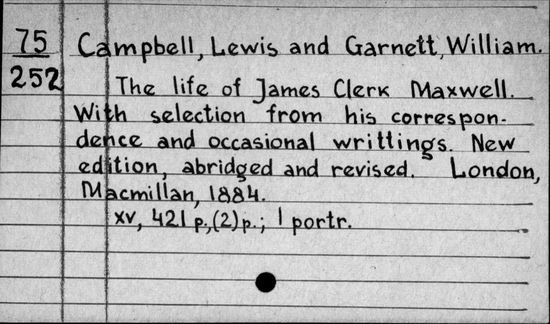 75
252
Campbell, Lewis and Garnett, William.
The life of James Clerk Maxwell.
With selection from his correspon-
dence and occasional writtings. New
edition, abridged and revised. London,
Macmillan, 1884.
xv, 421 p.,(2)p.; 1 portr.